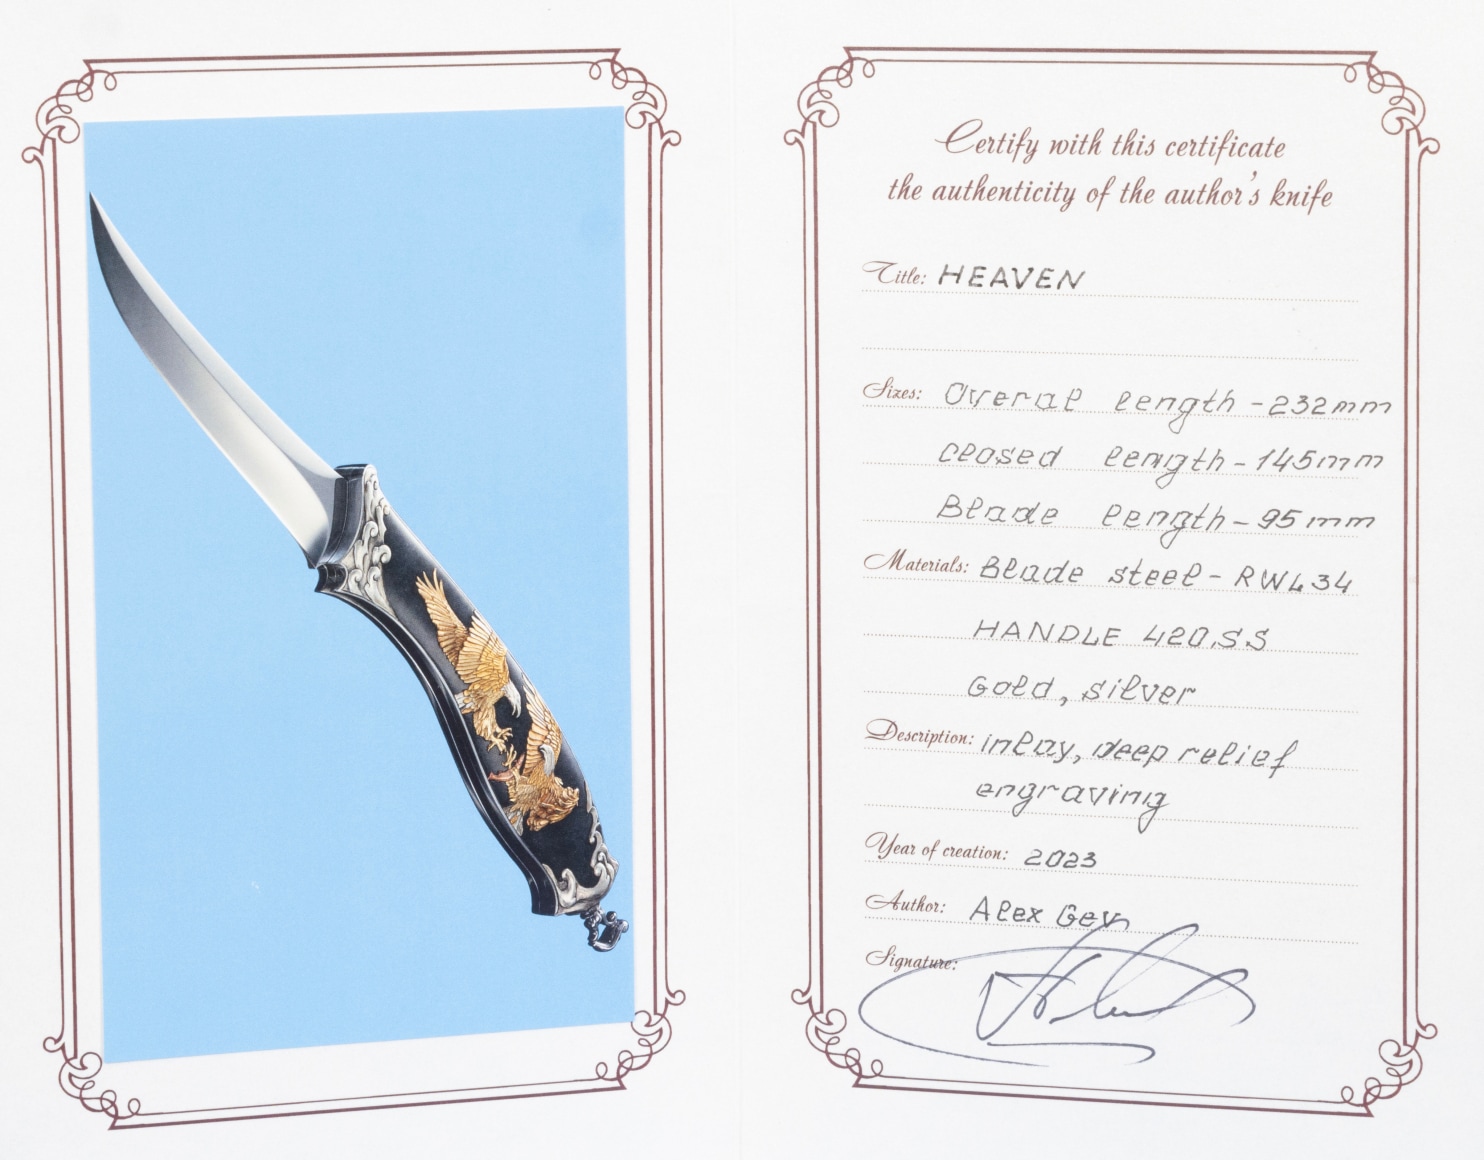 Certify with this certificate
the authenticity of the author's knife
Title: HEAVEN
Sizes: Overal length - 232mm
closed length - 145mm
Blade length - 95mm
Materials: Blade steel - RWL34
HANDLE 420.SS
Gold, silver
Description: inlay, deep relief
engraving
Year of creation: 2023
Author: Alex Gev
Signature: